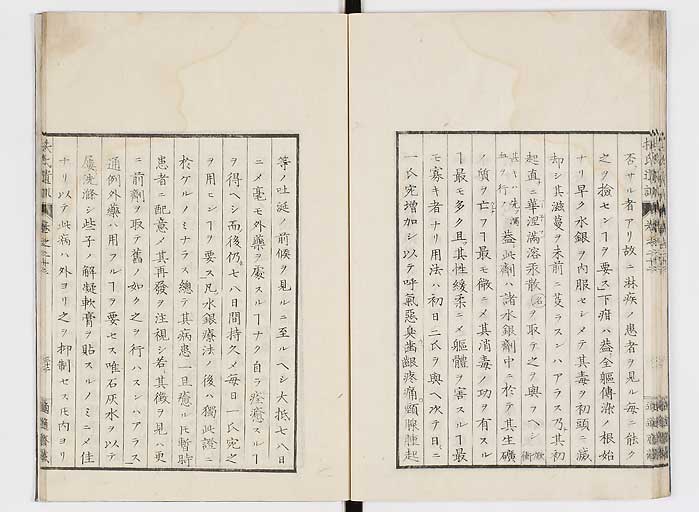 否サル者アリ故ニ淋疾ノ患者ヲ見ル毎ニ能ク
之ヲ撿センヿヲ要ス」下疳ハ葢全軀傳染ノ根始
ナリ早ク水銀ヲ内服セシメテ其毒ヲ初頭ニ滅
却シ其滋蔓ヲ未前ニ芟ラスンハアラス乃其初
起直ニ華涅滿溶汞散ヲ取テ之ヲ與フヘシ
葢此劑ハ諸水銀劑中ニ於テ其生礦
ノ質ヲ亡フヿ最モ微ニメ其消毒ノ功ヲ有スル
ヿ最モ多ク且其性緩柔ニメ軀體ヲ害スルヿ最
モ寡キ者ナリ用法ハ初日二氏ヲ與ヘ次テ日ニ
一氏宛増加シ以テ呼氣惡臭齒齦疼痛頸腺腫起
等ノ吐涎ノ前候ヲ見ルニ至ルヘシ大抵七八日
ニメ毫モ外藥ヲ廢スルヿナク自ラ痊癒スルヿ
ヲ得ヘシ而後仍七八日間持久メ毎日一氏宛之
ヲ用モシヿヲ要ス」凡水銀療法ノ後ハ獨此證ニ
於ケルノミナラス總テ其病患一旦癒ルモ暫時
患者ニ配意メ其再發ヲ注視シ若其徴ヲ見ハ更
ニ前劑ヲ取テ舊ノ如ク之ヲ行ハスンハアラス
通例外藥ハ用フルヿヲ要セス唯石灰水ヲ以テ
屢洗滌シ些子ノ解凝軟膏ヲ貼スルノミニメ佳
ナリ以テ此病ハ外ヨリ之ヲ抑制セス氏内ヨリ